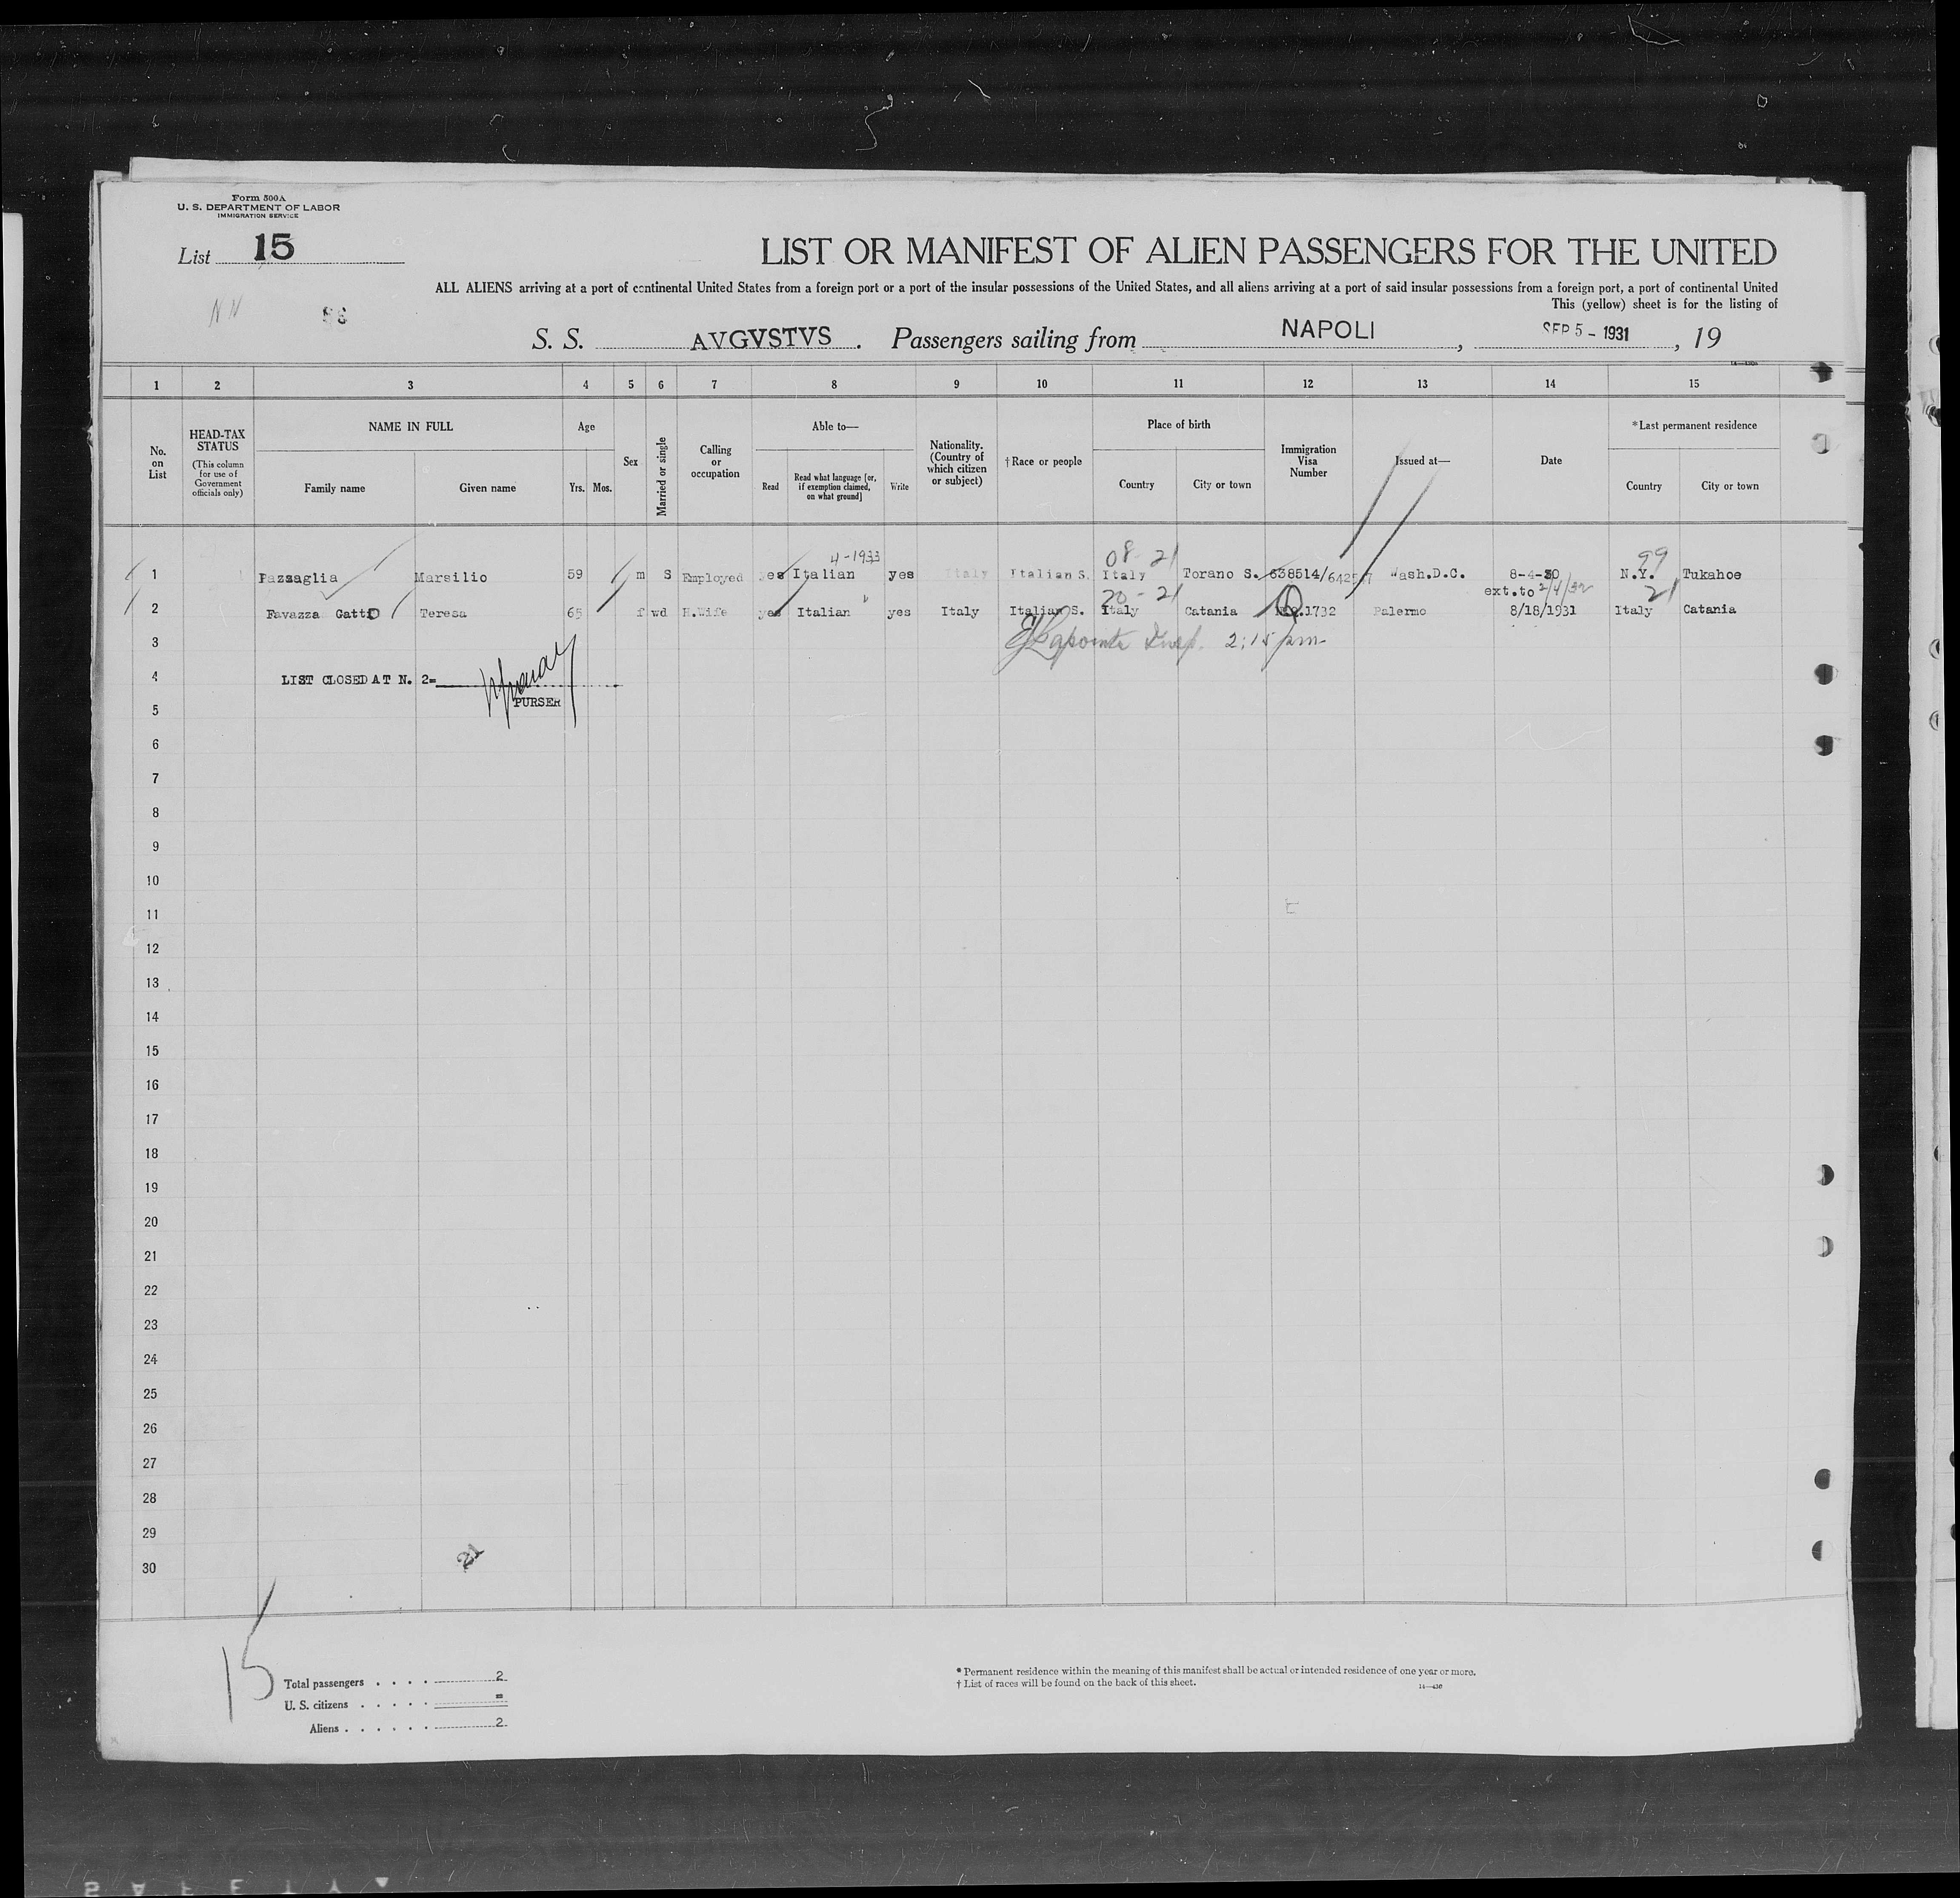 Form 500A
U. S. DEPARTMENT OF LABOR
IMMIGRATION SERVICE
List 15
LIST OR MANIFEST OF ALIEN PASSENGERS FOR THE UNITED
ALL ALIENS arriving at a port of continental United States from a foreign port or a port of the insular possessions of the United States, and all aliens arriving at a port of said insular possessions from a foreign port, a port of continental United
This (yellow) sheet is for the listing of
N N
S. S. AVGVSTVS. Passengers sailing from NAPOLI, SEP 5 - 1931, 19
1 2 3 4 5 6 7 8 9 10 11 12 13 14 15
No. on List
HEAD-TAX STATUS (This column for use of Government officials only)
NAME IN FULL
Family name Given name
Age
Yrs. Mos.
Sex
Married or single
Calling or occupation
Able to—
Read Read what language [or, if exemption claimed, on what ground] Write
Nationality. (Country of which citizen or subject)
†Race or people
Place of birth
Country City or town
Immigration Visa Number
Issued at—
Date
*Last permanent residence
Country City or town
4-1933 08 21 99
1 Pazzaglia Marsilio 59 m S Employed yes Italian yes Italy Italian S. Italy Torano S. 638514/ Wash.D.C. 8-4-30 N.Y. Tukahoe
20 - 21 ext.to 2/4/32 21
2 Favazza Gatto Teresa 65 f wd H.Wife yes Italian yes Italy Italian S. Italy Catania 1732 Palermo 8/18/1931 Italy Catania
3 Insp. 2:15 pm
4 LIST CLOSED AT N. 2=
PURSER
5
6
7
8
9
10
11
12
13
14
15
16
17
18
19
20
21
22
23
24
25
26
27
28
29
30
21
15
Total passengers . . . . 2
U. S. citizens . . . . . =
Aliens . . . . . . 2
* Permanent residence within the meaning of this manifest shall be actual or intended residence of one year or more.
† List of races will be found on the back of this sheet.
14—430
SAFETY